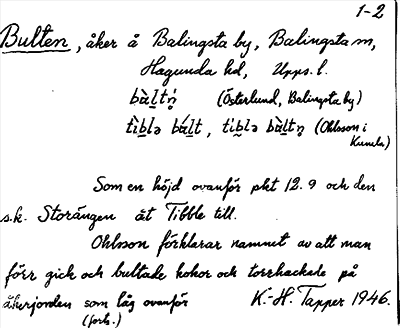 1-2
Bulten, åker å Balingsta by, Balingsta sn,
Hagunda hd, Upps. l.
bàḻtń̥ (Österlund, Balingsta by)
tìḇlə báḻt, tìḇlə bàḻtn̥ (Ohlsson i
Kumla)
Som en höjd ovanför pkt 12.9 och den
s.k. Storängen åt Tibble till.
Ohlsson förklarar namnet av att man
förr gick och bultade kokor och torrhackade på
åkerjorden som låg ovanför K.-H. Tapper 1946.
(forts.)